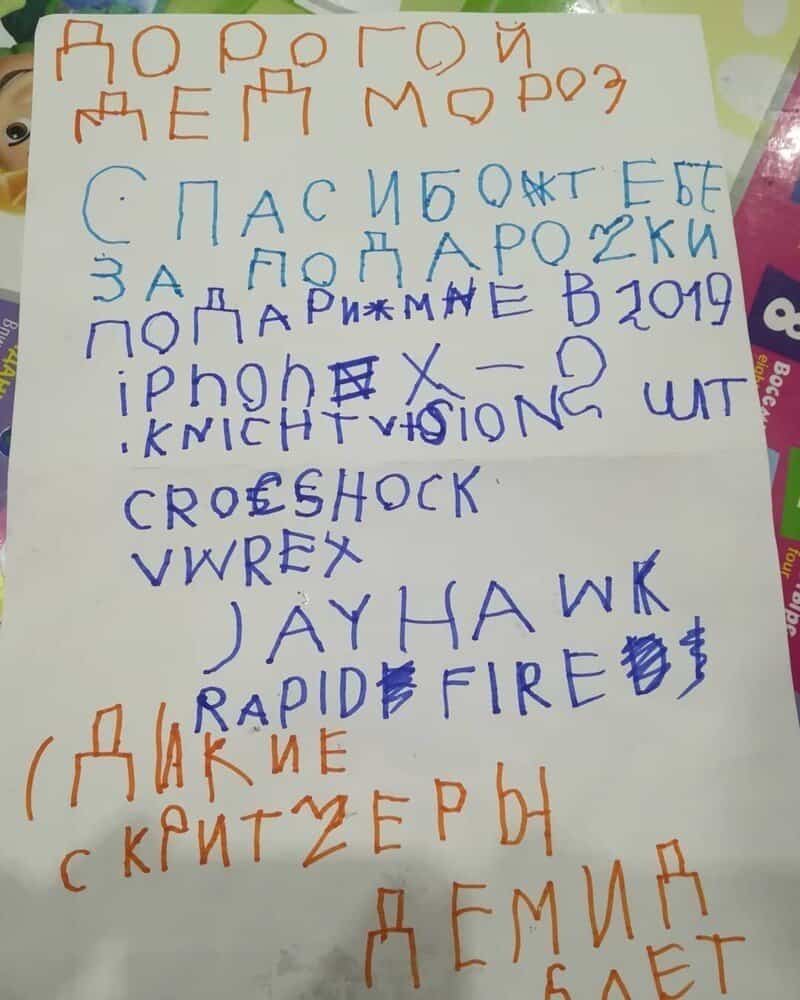 ДОРОГОЙ
ДЕД МОРОЗ
СПАСИБО ТЕБЕ
ЗА ПОДАРОЧКИ
ПОДАРИ МНЕ В 2019
iPhONE X - 2 ШТ
.KNICHTVISION
CROSSHOCK
VWREX
JAYHAWK
RAPID FIRE
(ДИКИЕ
СКРИТЧЕРЫ
ДЕМИД
6 ЛЕТ
8
eight
four